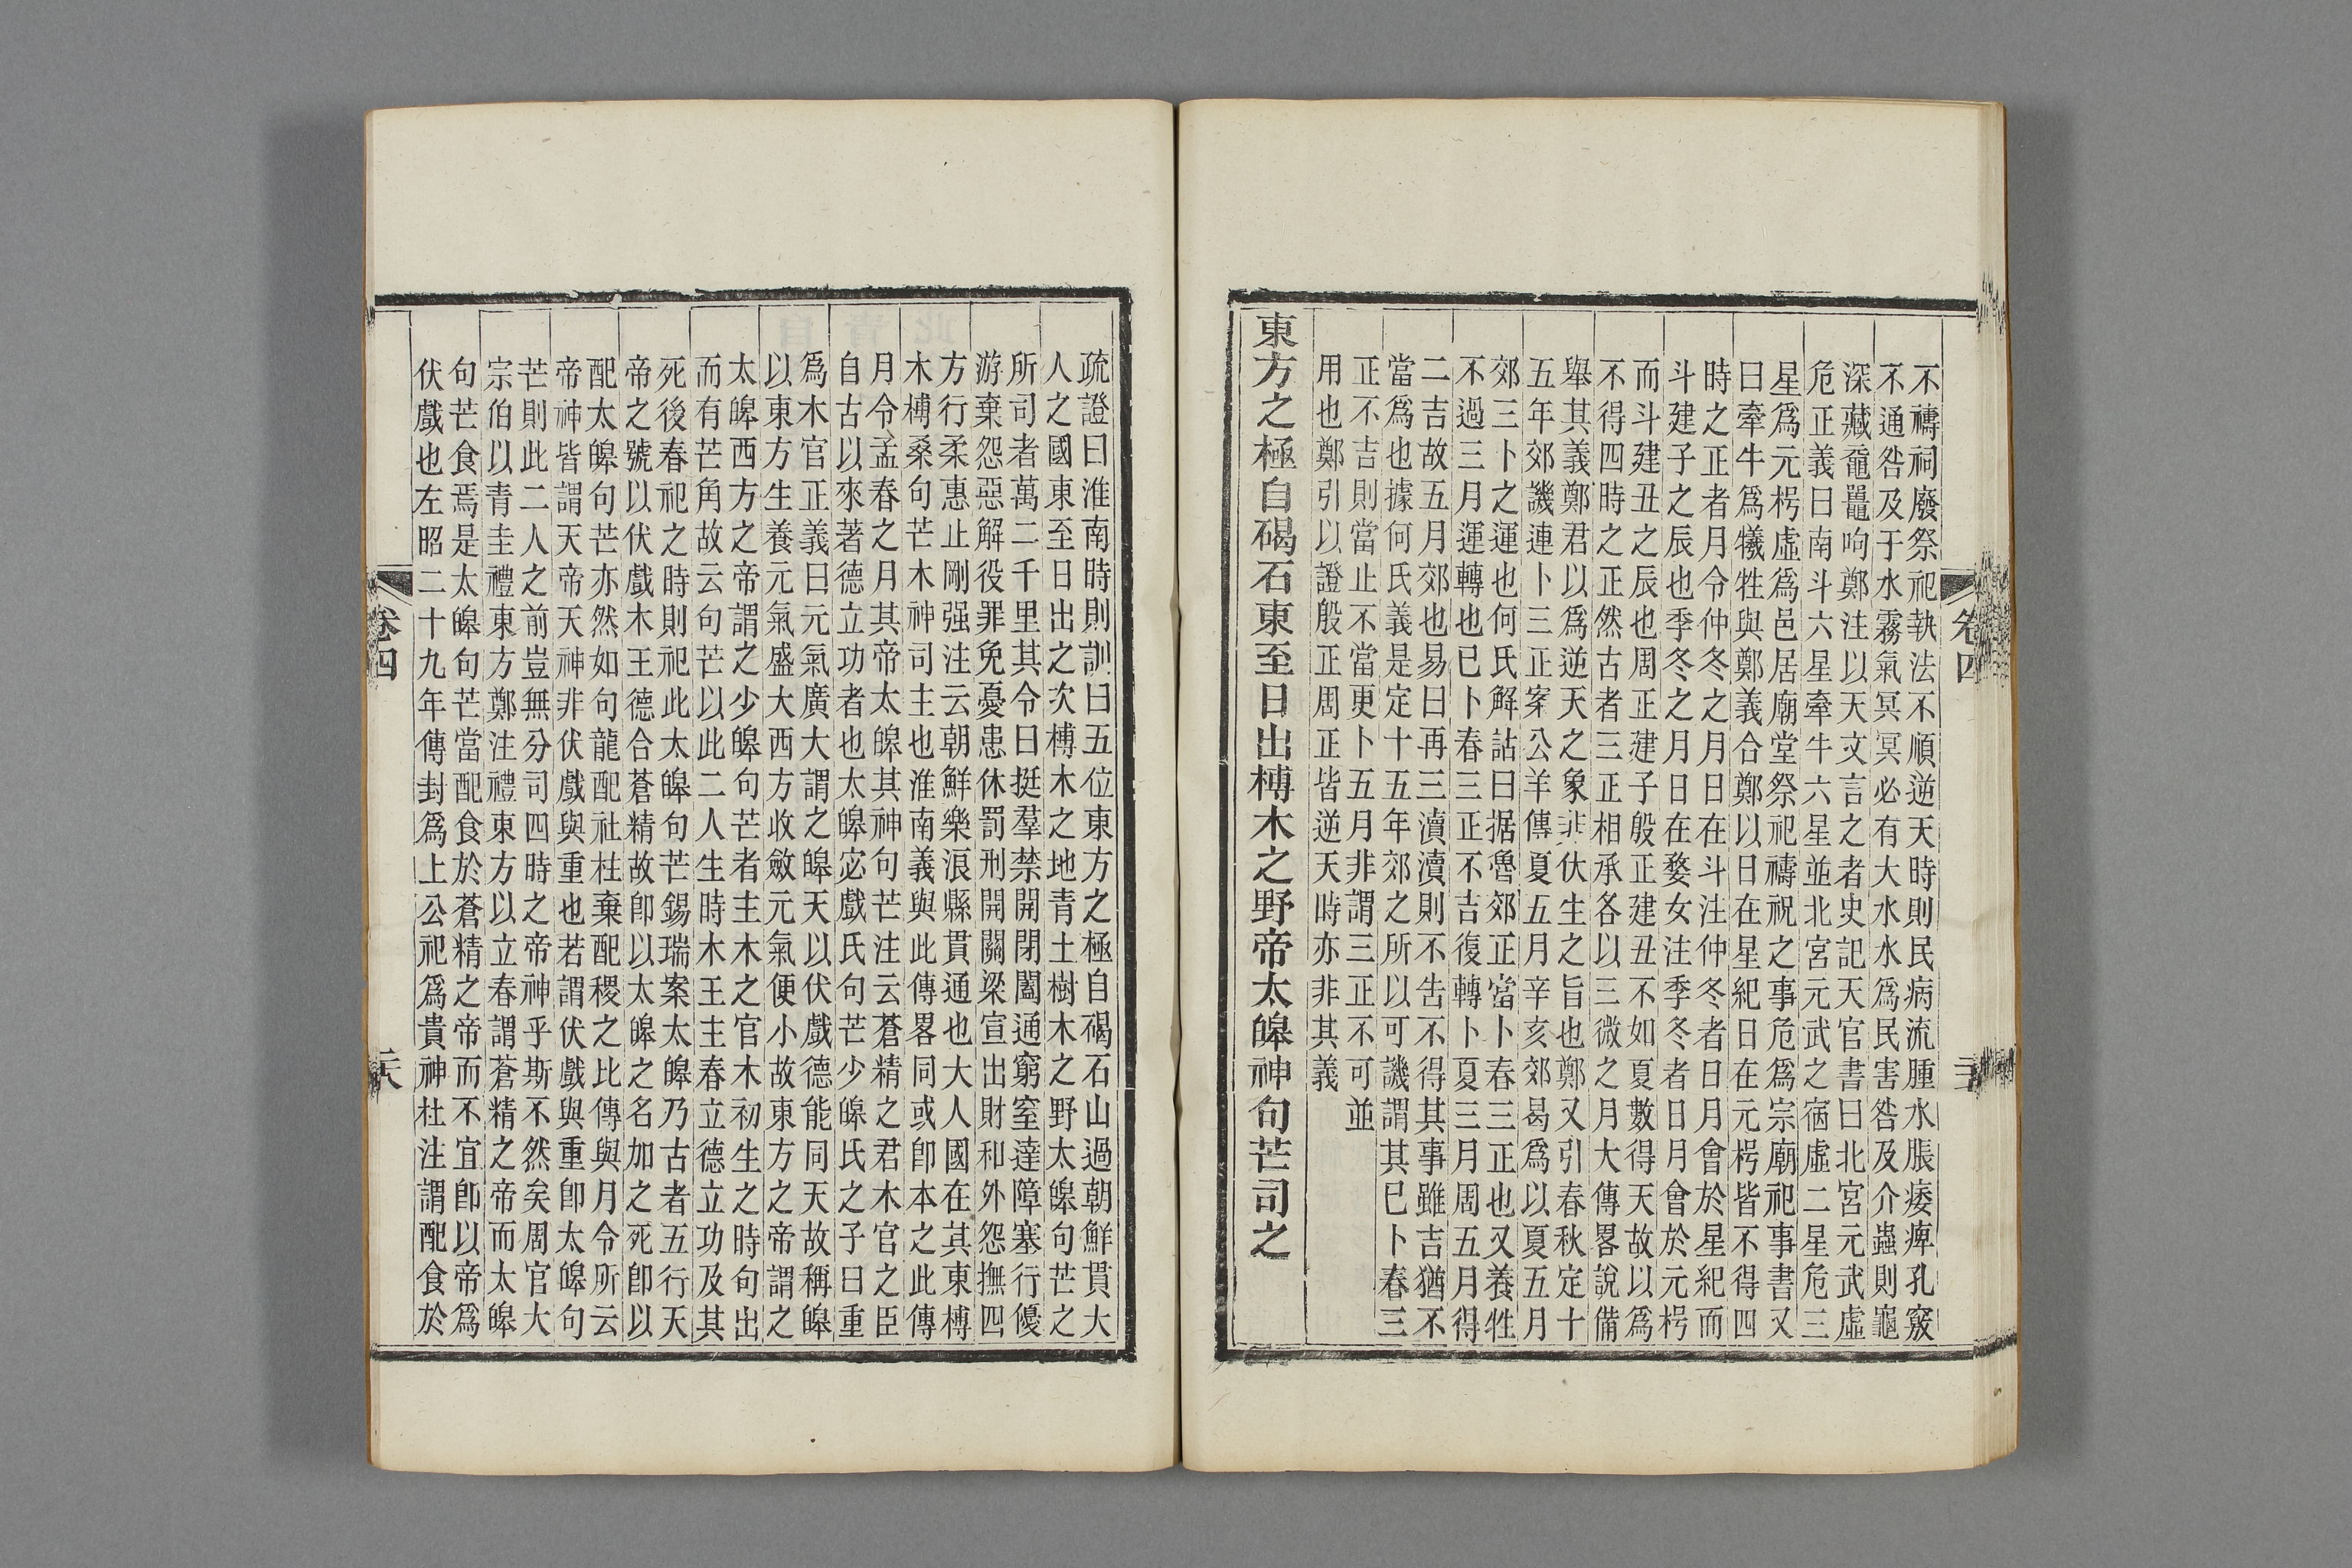 不禱祠廢祭祀執法不順逆天時則民病流腫水脹痿痺孔竅
不通咎及于水霧氣冥冥必有大水水爲民害咎及介蟲則龜
深藏黿鼉呴鄭注以天文言之者史記天官書曰北宮元武虛
危正義曰南斗六星牽牛六星並北宮元武之宿虛二星危三
星爲元枵虛爲邑居廟堂祭祀禱祝之事危爲宗廟祀事書又
曰牽牛爲犧牲與鄭義合鄭以日在星紀日在元枵皆不得四
時之正者月令仲冬之月日在斗注仲冬者日月會於星紀而
斗建子之辰也季冬之月日在婺女注季冬者日月會於元枵
而斗建丑之辰也周正建子殷正建丑不如夏數得天故以爲
不得四時之正然古者三正相承各以三微之月大傳畧說備
舉其義鄭君以爲逆天之象非伏生之旨也鄭又引春秋定十
五年郊譏連卜三正案公羊傳夏五月辛亥郊曷爲以夏五月
郊三卜之運也何氏解詁曰据魯郊正當卜春三正也又養牲
不過三月運轉也已卜春三正不吉復轉卜夏三月周五月得
二吉故五月郊也易曰再三瀆瀆則不告不得其事雖吉猶不
當爲也據何氏義是定十五年郊之所以可譏謂其已卜春三
正不吉則當止不當更卜五月非謂三正不可並
用也鄭引以證殷正周正皆逆天時亦非其義
東方之極自碣石東至日出榑木之野帝太皞神句芒司之
卷四
疏證曰淮南時則訓曰五位東方之極自碣石山過朝鮮貫大
人之國東至日出之次榑木之地青土樹木之野太皞句芒之
所司者萬二千里其令曰挺羣禁開閉闔通窮窒達障塞行優
游棄怨惡解役罪免憂患休罰刑開關梁宣出財和外怨撫四
方行柔惠止剛强注云朝鮮樂浪縣貫通也大人國在其東榑
木榑桑句芒木神司主也淮南義與此傳畧同或卽本之此傳
月令孟春之月其帝太皞其神句芒注云蒼精之君木官之臣
自古以來著德立功者也太皞宓戲氏句芒少皞氏之子曰重
爲木官正義曰元氣廣大謂之皞天以伏戲德能同天故稱皞
以東方生養元氣盛大西方收斂元氣便小故東方之帝謂之
太皞西方之帝謂之少皞句芒者主木之官木初生之時句出
而有芒角故云句芒以此二人生時木王主春立德立功及其
死後春祀之時則祀此太皞句芒錫瑞案太皞乃古者五行天
帝之號以伏戲木王德合蒼精故卽以太皞之名加之死卽以
配太皞句芒亦然如句龍配社柱棄配稷之比傳與月令所云
帝神皆謂天帝天神非伏戲與重也若謂伏戲與重卽太皞句
芒則此二人之前豈無分司四時之帝神乎斯不然矣周官大
宗伯以青圭禮東方鄭注禮東方以立春謂蒼精之帝而太皞
句芒食焉是太皞句芒當配食於蒼精之帝而不宜卽以帝爲
伏戲也左昭二十九年傳封爲上公祀爲貴神杜注謂配食於
卷四